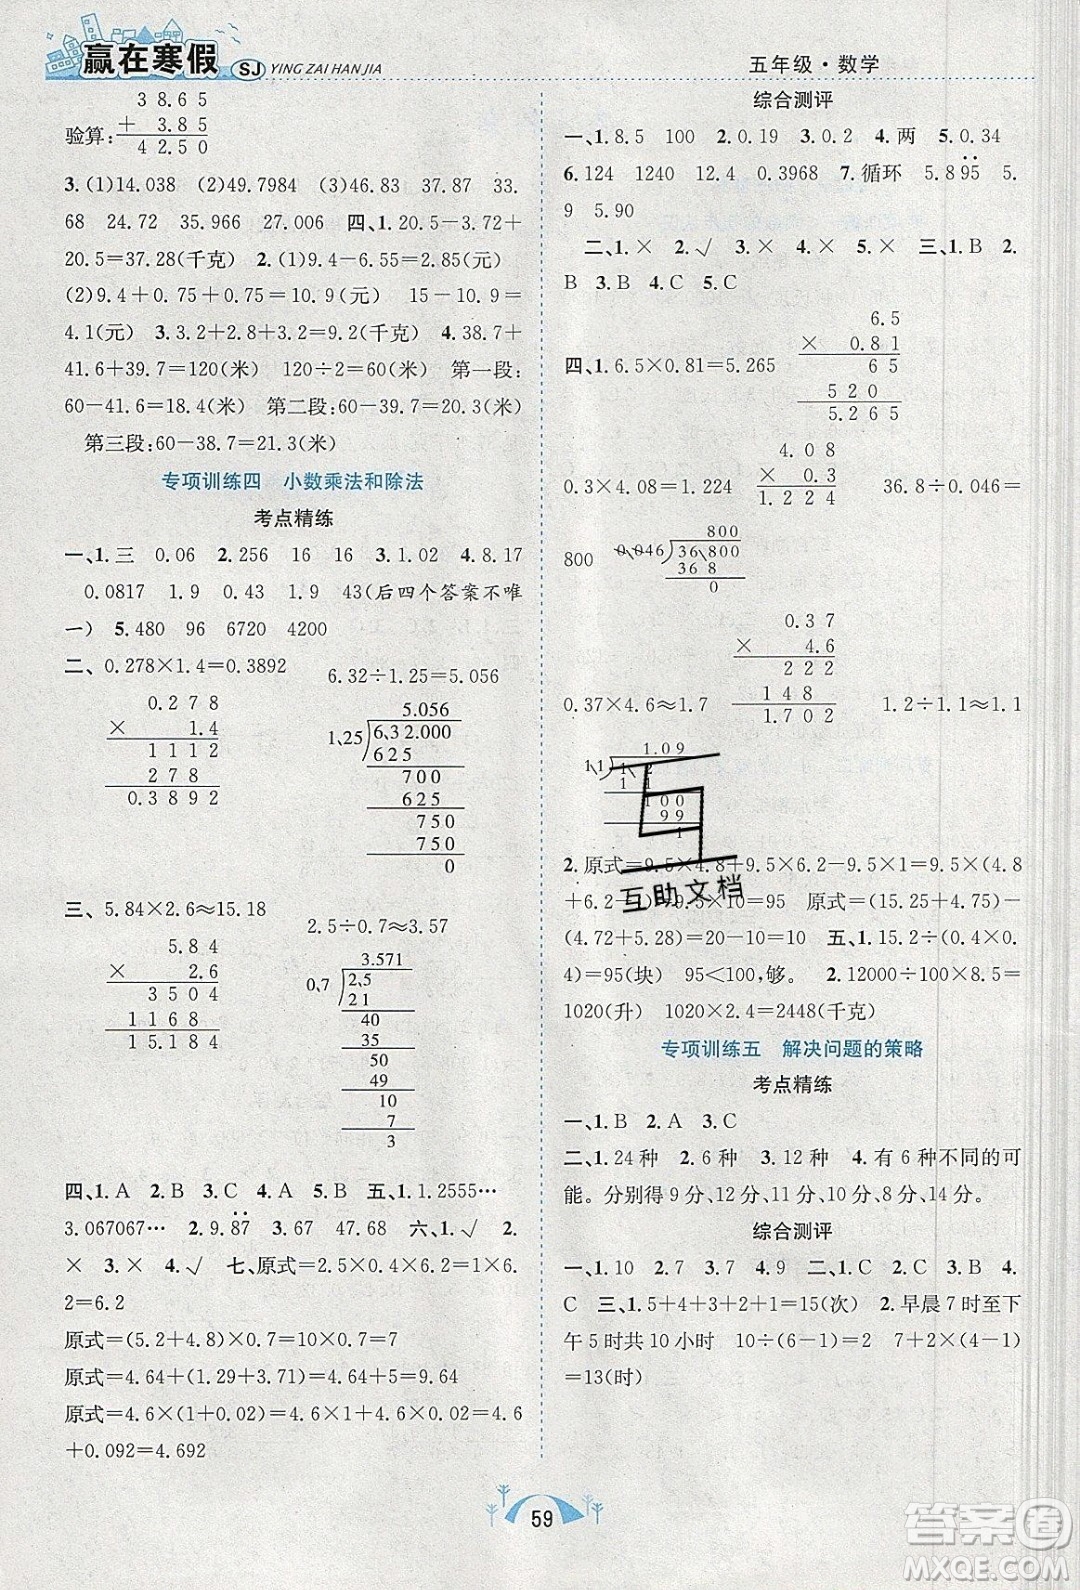 赢在寒假 SJ YING ZAI HAN JIA
五年级·数学
3 8.6 5
验算: + 3.8 5
4 2.5 0
3.(1)14.038 (2)49.7984 (3)46.83 37.87 33.
68 24.72 35.966 27.006 四、1.20.5-3.72+
20.5=37.28(千克) 2.(1)9.4-6.55=2.85(元)
(2)9.4+0.75+0.75=10.9(元) 15-10.9=
4.1(元) 3.3.2+2.8+3.2=9.2(千克) 4.38.7+
41.6+39.7=120(米) 120÷2=60(米) 第一段:
60-41.6=18.4(米) 第二段:60-39.7=20.3(米)
第三段:60-38.7=21.3(米)
专项训练四 小数乘法和除法
考点精练
一、1.三 0.06 2.256 16 16 3.1.02 4.8.17
0.0817 1.9 0.43 1.9 43(后四个答案不唯
一) 5.480 96 6720 4200
二、0.278×1.4=0.3892 6.32÷1.25=5.056
0.2 7 8
× 1.4
1 1 1 2
2 7 8
0.3 8 9 2
5.056
1.25 6,3 2.000
6 2 5
7 0 0
6 2 5
7 5 0
7 5 0
0
三、5.84×2.6≈15.18 2.5÷0.7≈3.57
5.8 4
× 2.6
3 5 0 4
1 1 6 8
1 5.1 8 4
3.571
0,7 2,5
2 1
40
35
50
49
10
7
3
四、1.A 2.B 3.C 4.A 五、1.1.2555…
3.067067… 2.9.8̇7̇ 3.67 47.68 六、1.√ 2.
× 3.× 4.√ 七、原式=2.5×0.4×6.2=1×6.
2=6.2
原式=(5.2+4.8)×0.7=10×0.7=7
原式=4.64+(1.29+3.71)=4.64+5=9.64
原式=4.6×(1+0.02)=4.6×1+4.6×0.02=4.6
+0.092=4.692
综合测评
一、1.8.5 100 2.0.19 3.0.2 4.两 5.0.34
6.124 1240 12.4 0.3968 7.循环 5.89̇5̇ 5.
9 5.90
二、1.× 2.√ 3.× 4.× 5.× 三、1.B 2.
B 3.B 4.C 5.C
6.5
× 0.8 1
四、1.6.5×0.81=5.265 6 5
5 2 0
5.2 6 5
4.0 8
× 0.3
0.3×4.08=1.224 1.2 2 4 36.8÷0.046=
800
800 0.046 36 800
36 8
0
0.3 7
× 4.6
2 2 2
1 4 8
0.37×4.6≈1.7 1.7 0 2 1.2÷1.1≈1.1
1.09
1 1 1 2
1 1
1 0 0
9 9
1
2.原式=9.5×4.8+9.5×6.2-9.5×1=9.5×(4.8
+6.2-1)=9.5×10=95 原式=(15.25+4.75)-
(4.72+5.28)=20-10=10 五、1.15.2÷(0.4×
0.4)=95(块) 95<100,够。 2.12000÷100×8.5=
1020(升) 1020×2.4=2448(千克)
互助文档
专项训练五 解决问题的策略
考点精练
一、1.B 2.A 3.C
二、1.24种 2.6种 3.12种 4.有6种不同的可
能。分别得9分、12分、15分、11分、8分、14分。
综合测评
一、1.10 2.7 3.7 4.9 二、1.C 2.C 3.B 4.
C 三、1.5+4+3+2+1=15(次) 2.早晨7时至下
午5时共10小时 10÷(6-1)=2 7+2×(4-1)
=13(时)
59
答案圈
MXQE.COM